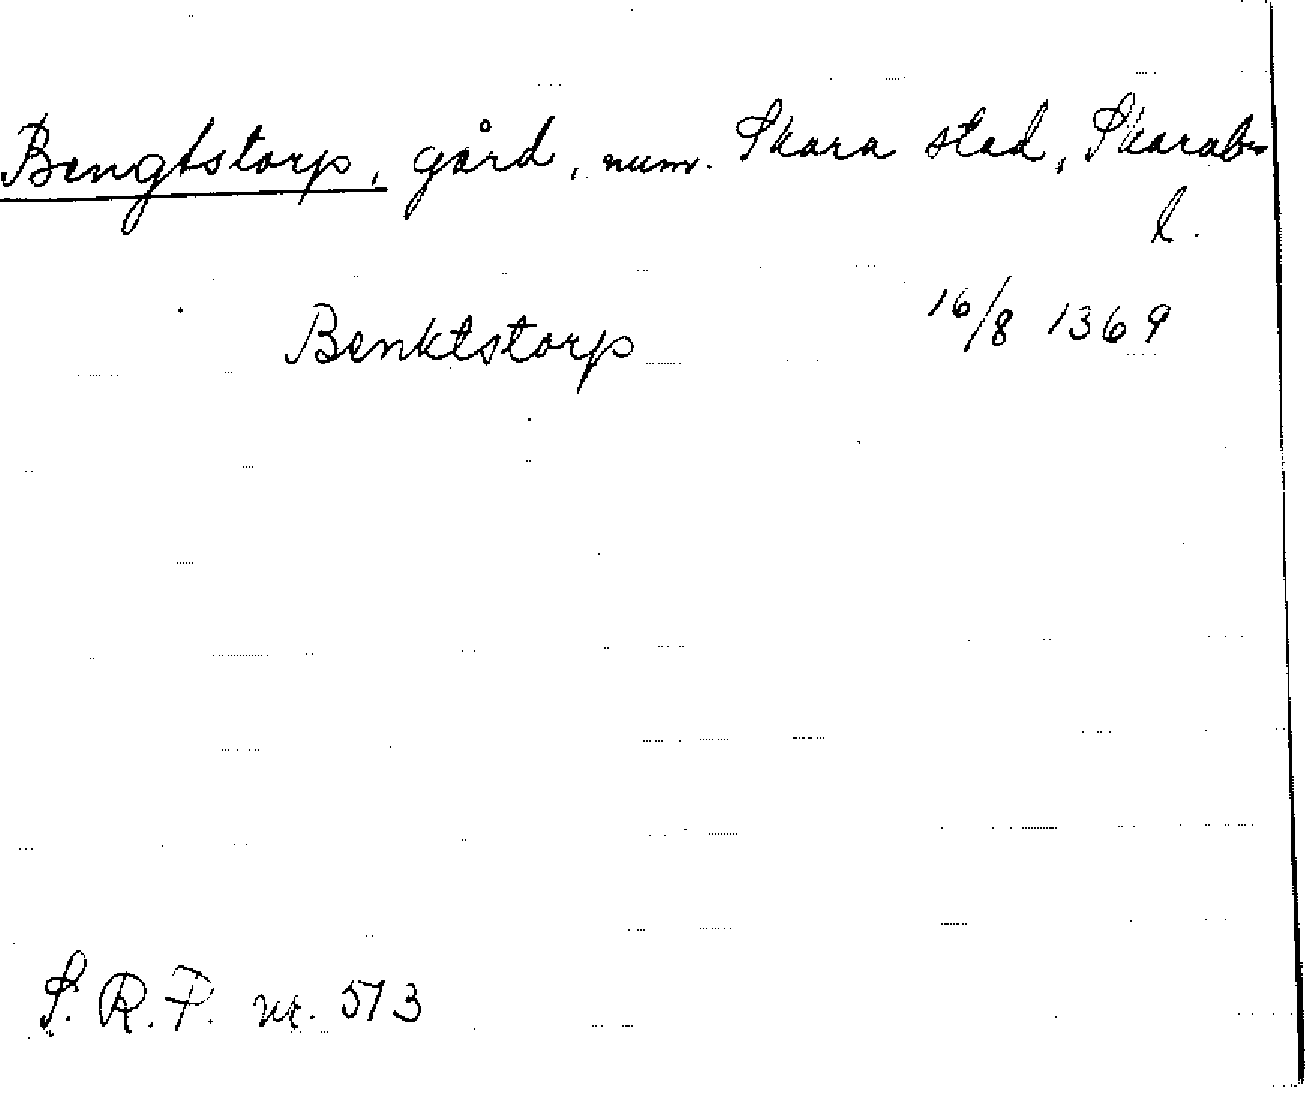 Bengtstorp, gård, num. Skara stad, Skarab.
l.
Benktstorp 16/8 1369
S.R.P. nr. 573